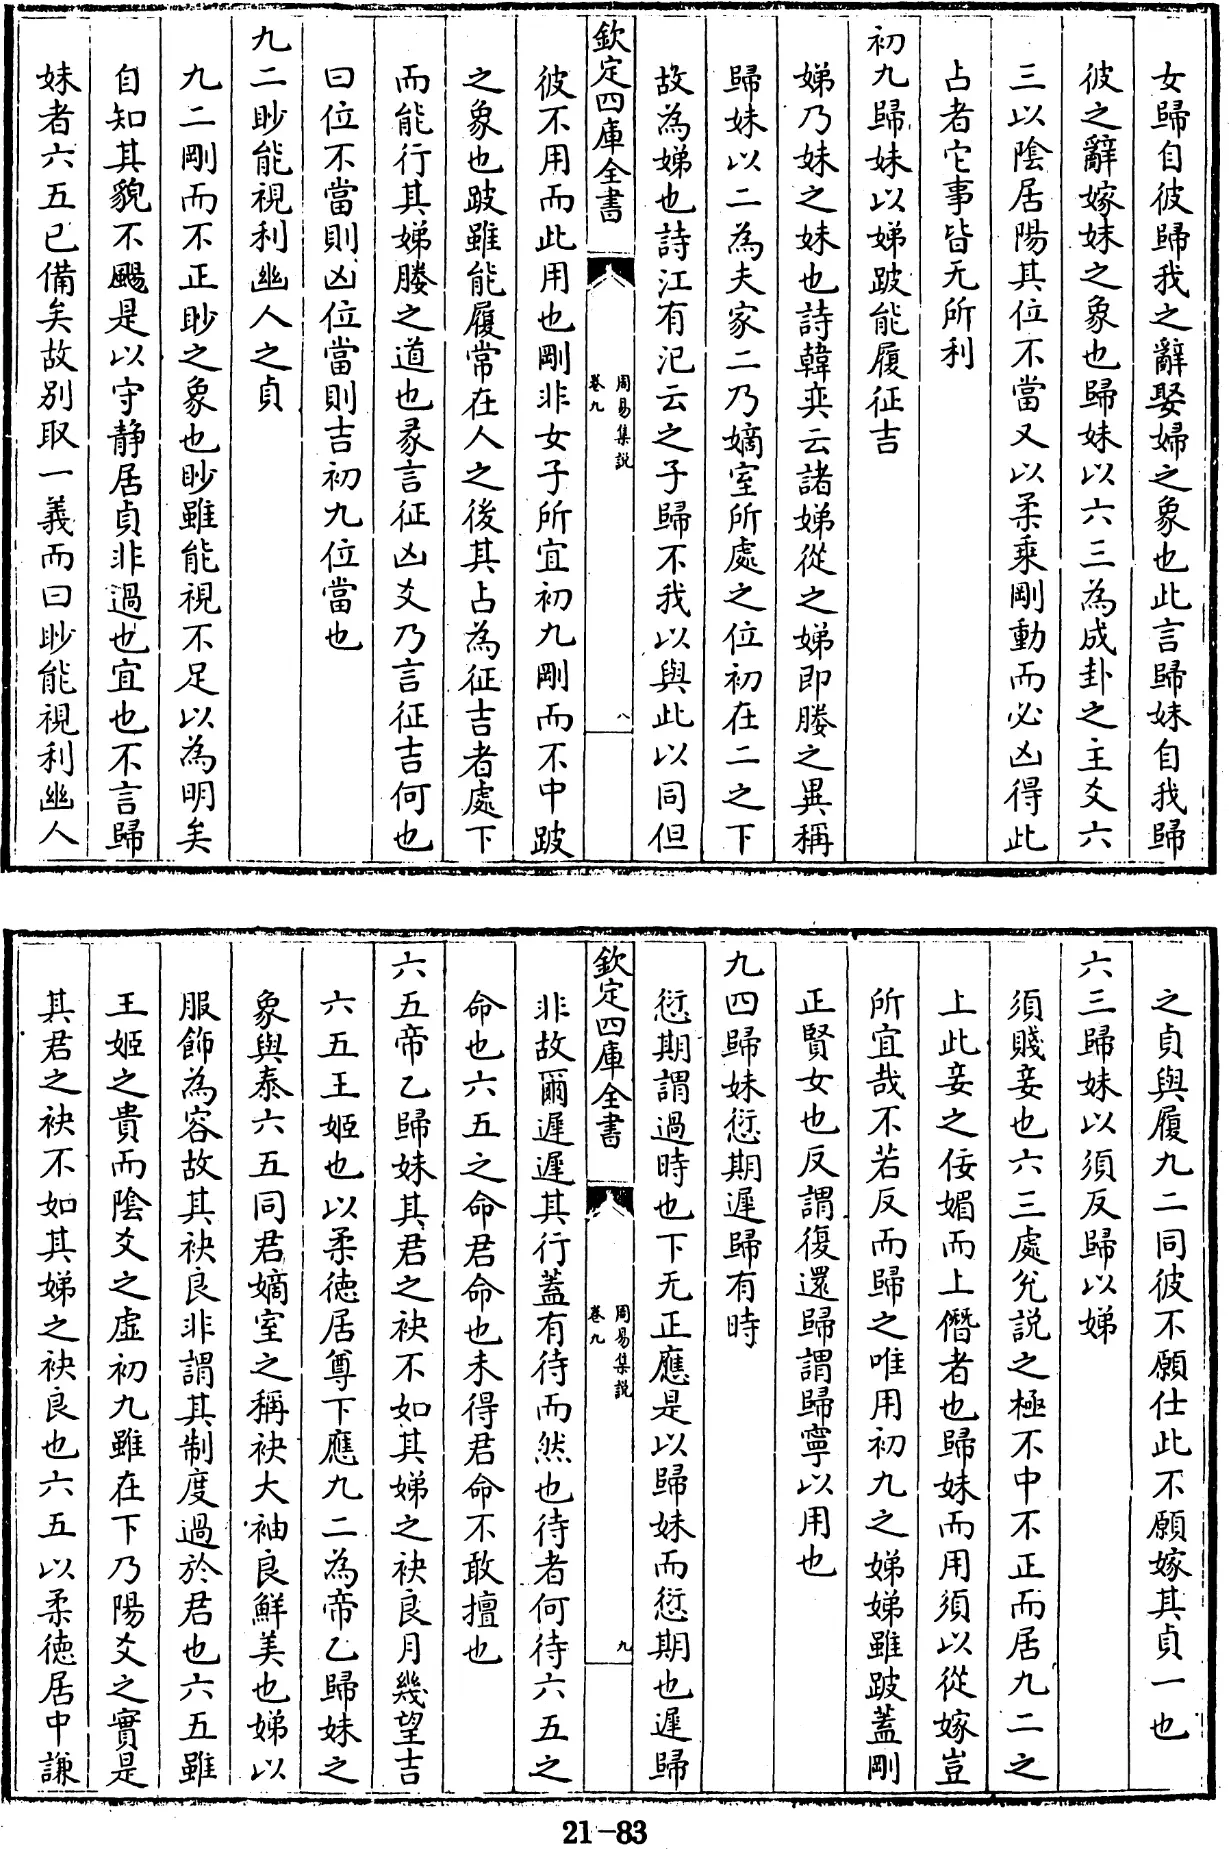 女歸自彼歸我之辭娶婦之象也此言歸妹自我歸
彼之辭嫁妹之象也歸妹以六三為成卦之主爻六
三以陰居陽其位不當又以柔乘剛動而必凶得此
占者它事皆无所利
初九歸妹以娣跛能履征吉
娣乃妹之妹也詩韓奕云諸娣從之娣即媵之異稱
歸妹以二為夫家二乃嫡室所處之位初在二之下
故為娣也詩江有汜云之子歸不我以與此以同但
欽定四庫全書
周易集說
卷九
八
彼不用而此用也剛非女子所宜初九剛而不中跛
之象也跛雖能履常在人之後其占為征吉者處下
而能行其娣媵之道也彖言征凶爻乃言征吉何也
曰位不當則凶位當則吉初九位當也
九二眇能視利幽人之貞
九二剛而不正眇之象也眇雖能視不足以為明矣
自知其貌不颺是以守静居貞非過也宜也不言歸
妹者六五已備矣故別取一義而曰眇能視利幽人
之貞與履九二同彼不願仕此不願嫁其貞一也
六三歸妹以須反歸以娣
須賤妾也六三處兊說之極不中不正而居九二之
上此妾之佞媚而上僭者也歸妹而用須以從嫁豈
所宜哉不若反而歸之唯用初九之娣娣雖跛蓋剛
正賢女也反謂復還歸謂歸寧以用也
九四歸妹愆期遲歸有時
愆期謂過時也下无正應是以歸妹而愆期也遲歸
欽定四庫全書
周易集說
卷九
九
非故爾遲遲其行蓋有待而然也待者何待六五之
命也六五之命君命也未得君命不敢擅也
六五帝乙歸妹其君之袂不如其娣之袂良月幾望吉
六五王姬也以柔德居尊下應九二為帝乙歸妹之
象與泰六五同君嫡室之稱袂大袖良鮮美也娣以
服飾為容故其袂良非謂其制度過於君也六五雖
王姬之貴而陰爻之虛初九雖在下乃陽爻之實是
其君之袂不如其娣之袂良也六五以柔德居中謙
21-83